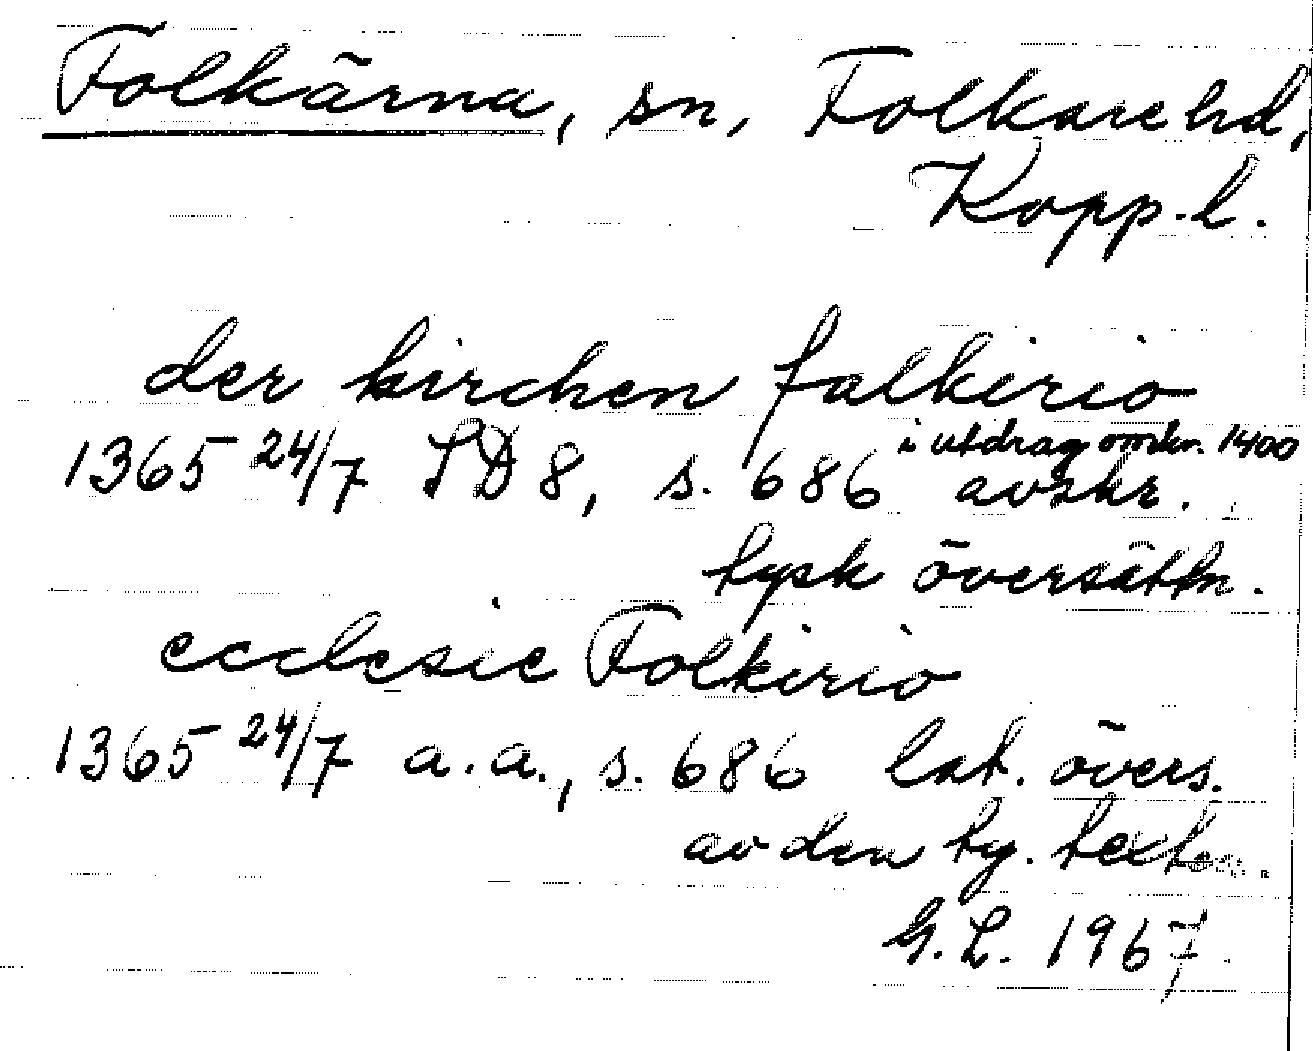 Folkärna, sn, Folkare hd,
Kopp. l.
der kirchen falkirio
i utdrag omkr. 1400
1365 24/7 SD 8, s. 686 avskr.
tysk översättn.
ecclesie Folkirio
1365 24/7 a.a., s. 686 lat. övers.
av den ty. texten.
G.L. 1967